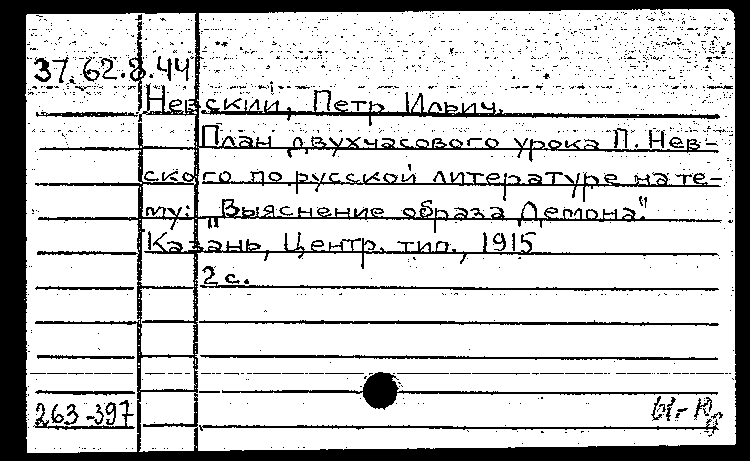 37.62.8.44
Невский, Петр Ильич.
План двухчасового урока П. Нев-
ского по русской литературе на те-
му: „Выяснение образа Демона".
Казань, Центр. тип., 1915
2 с.
263-397